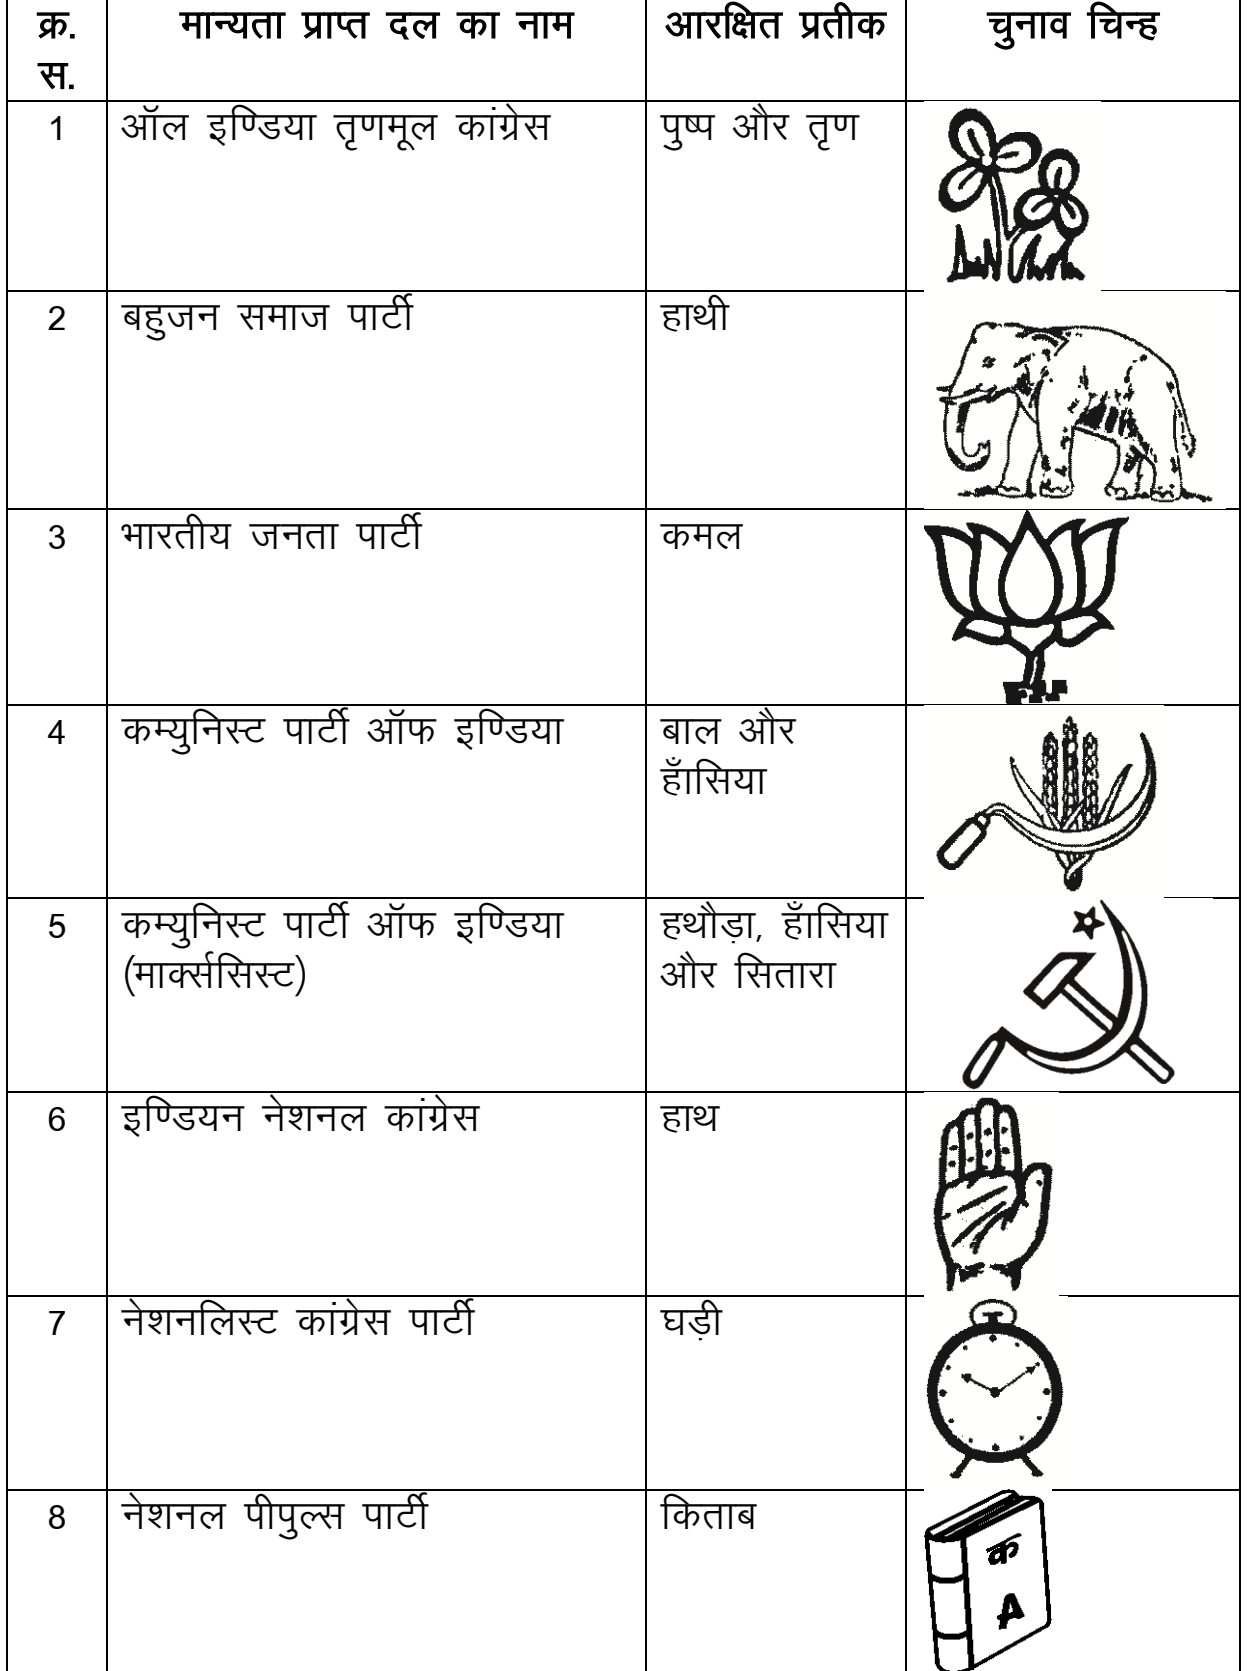 क्र. मान्यता प्राप्त दल का नाम आरक्षित प्रतीक चुनाव चिन्ह
स.
1 ऑल इण्डिया तृणमूल कांग्रेस पुष्प और तृण
2 बहुजन समाज पार्टी हाथी
3 भारतीय जनता पार्टी कमल
4 कम्युनिस्ट पार्टी ऑफ इण्डिया बाल और
हाँसिया
5 कम्युनिस्ट पार्टी ऑफ इण्डिया हथौड़ा, हाँसिया
(मार्क्ससिस्ट) और सितारा
6 इण्डियन नेशनल कांग्रेस हाथ
7 नेशनलिस्ट कांग्रेस पार्टी घड़ी
8 नेशनल पीपुल्स पार्टी किताब
क
A